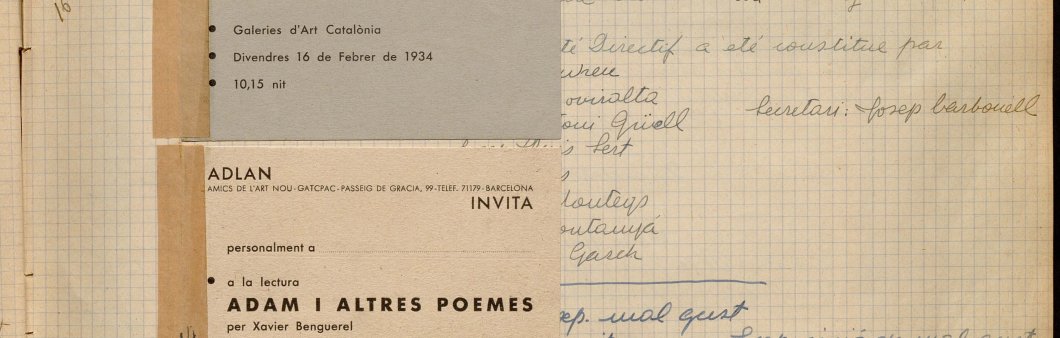 Galeries d'Art Catalònia
Divendres 16 de Febrer de 1934
10,15 nit
ADLAN
AMICS DE L'ART NOU-GATCPAC-PASSEIG DE GRACIA, 99-TELEF. 71179-BARCELONA
INVITA
personalment a
a la lectura
ADAM I ALTRES POEMES
per Xavier Benguerel
té Directif a été constitué par
oviralta
Secretari: Josep Carbonell
oni Güell
Sert
ontanyá
Gasch
exp. mal gust